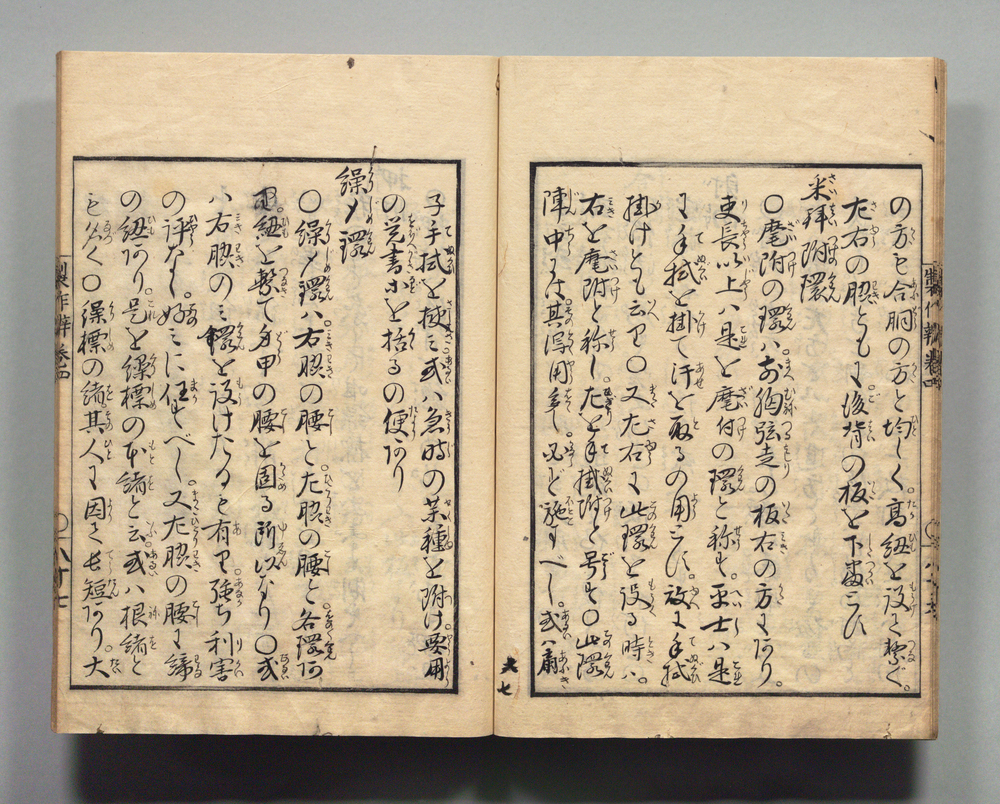 の方も合胴の方と均しく。高紐を設て繋ぐ。
左右の脇ともに後背の板を下
采拝附環
〇麾附の環ハ。前胸弦走の板右の方にあり。
吏長以上ハ是を麾付の環と称す。平士ハ是
に手拭を掛て汗を取るの用とす。故に手拭
掛けとも云り〇又左右に此環を設る時ハ。
右を麾附と称し。左を手拭掛附と号す〇此環
陣中には其得用多し。必ず施すべし。或ハ扇
子手拭を挾ミ或ハ急時の薬種を附け要用
の覚書等を括るの便あり
繰〆環
〇繰〆環ハ右脇の腰と左脇の腰と各環
紐を繋て身甲の腰を固る所以なり〇或
ハ右脇のミ環を設けたるも有り強ち利害
の評なし。好ミに任すべし。又左脇の腰に締
の紐あり。是を繰標の本緒と云。或ハ根緒と
も云〇繰標の緒其人に因て長短あり。大
製作辨 巻四
〇八十七
六七